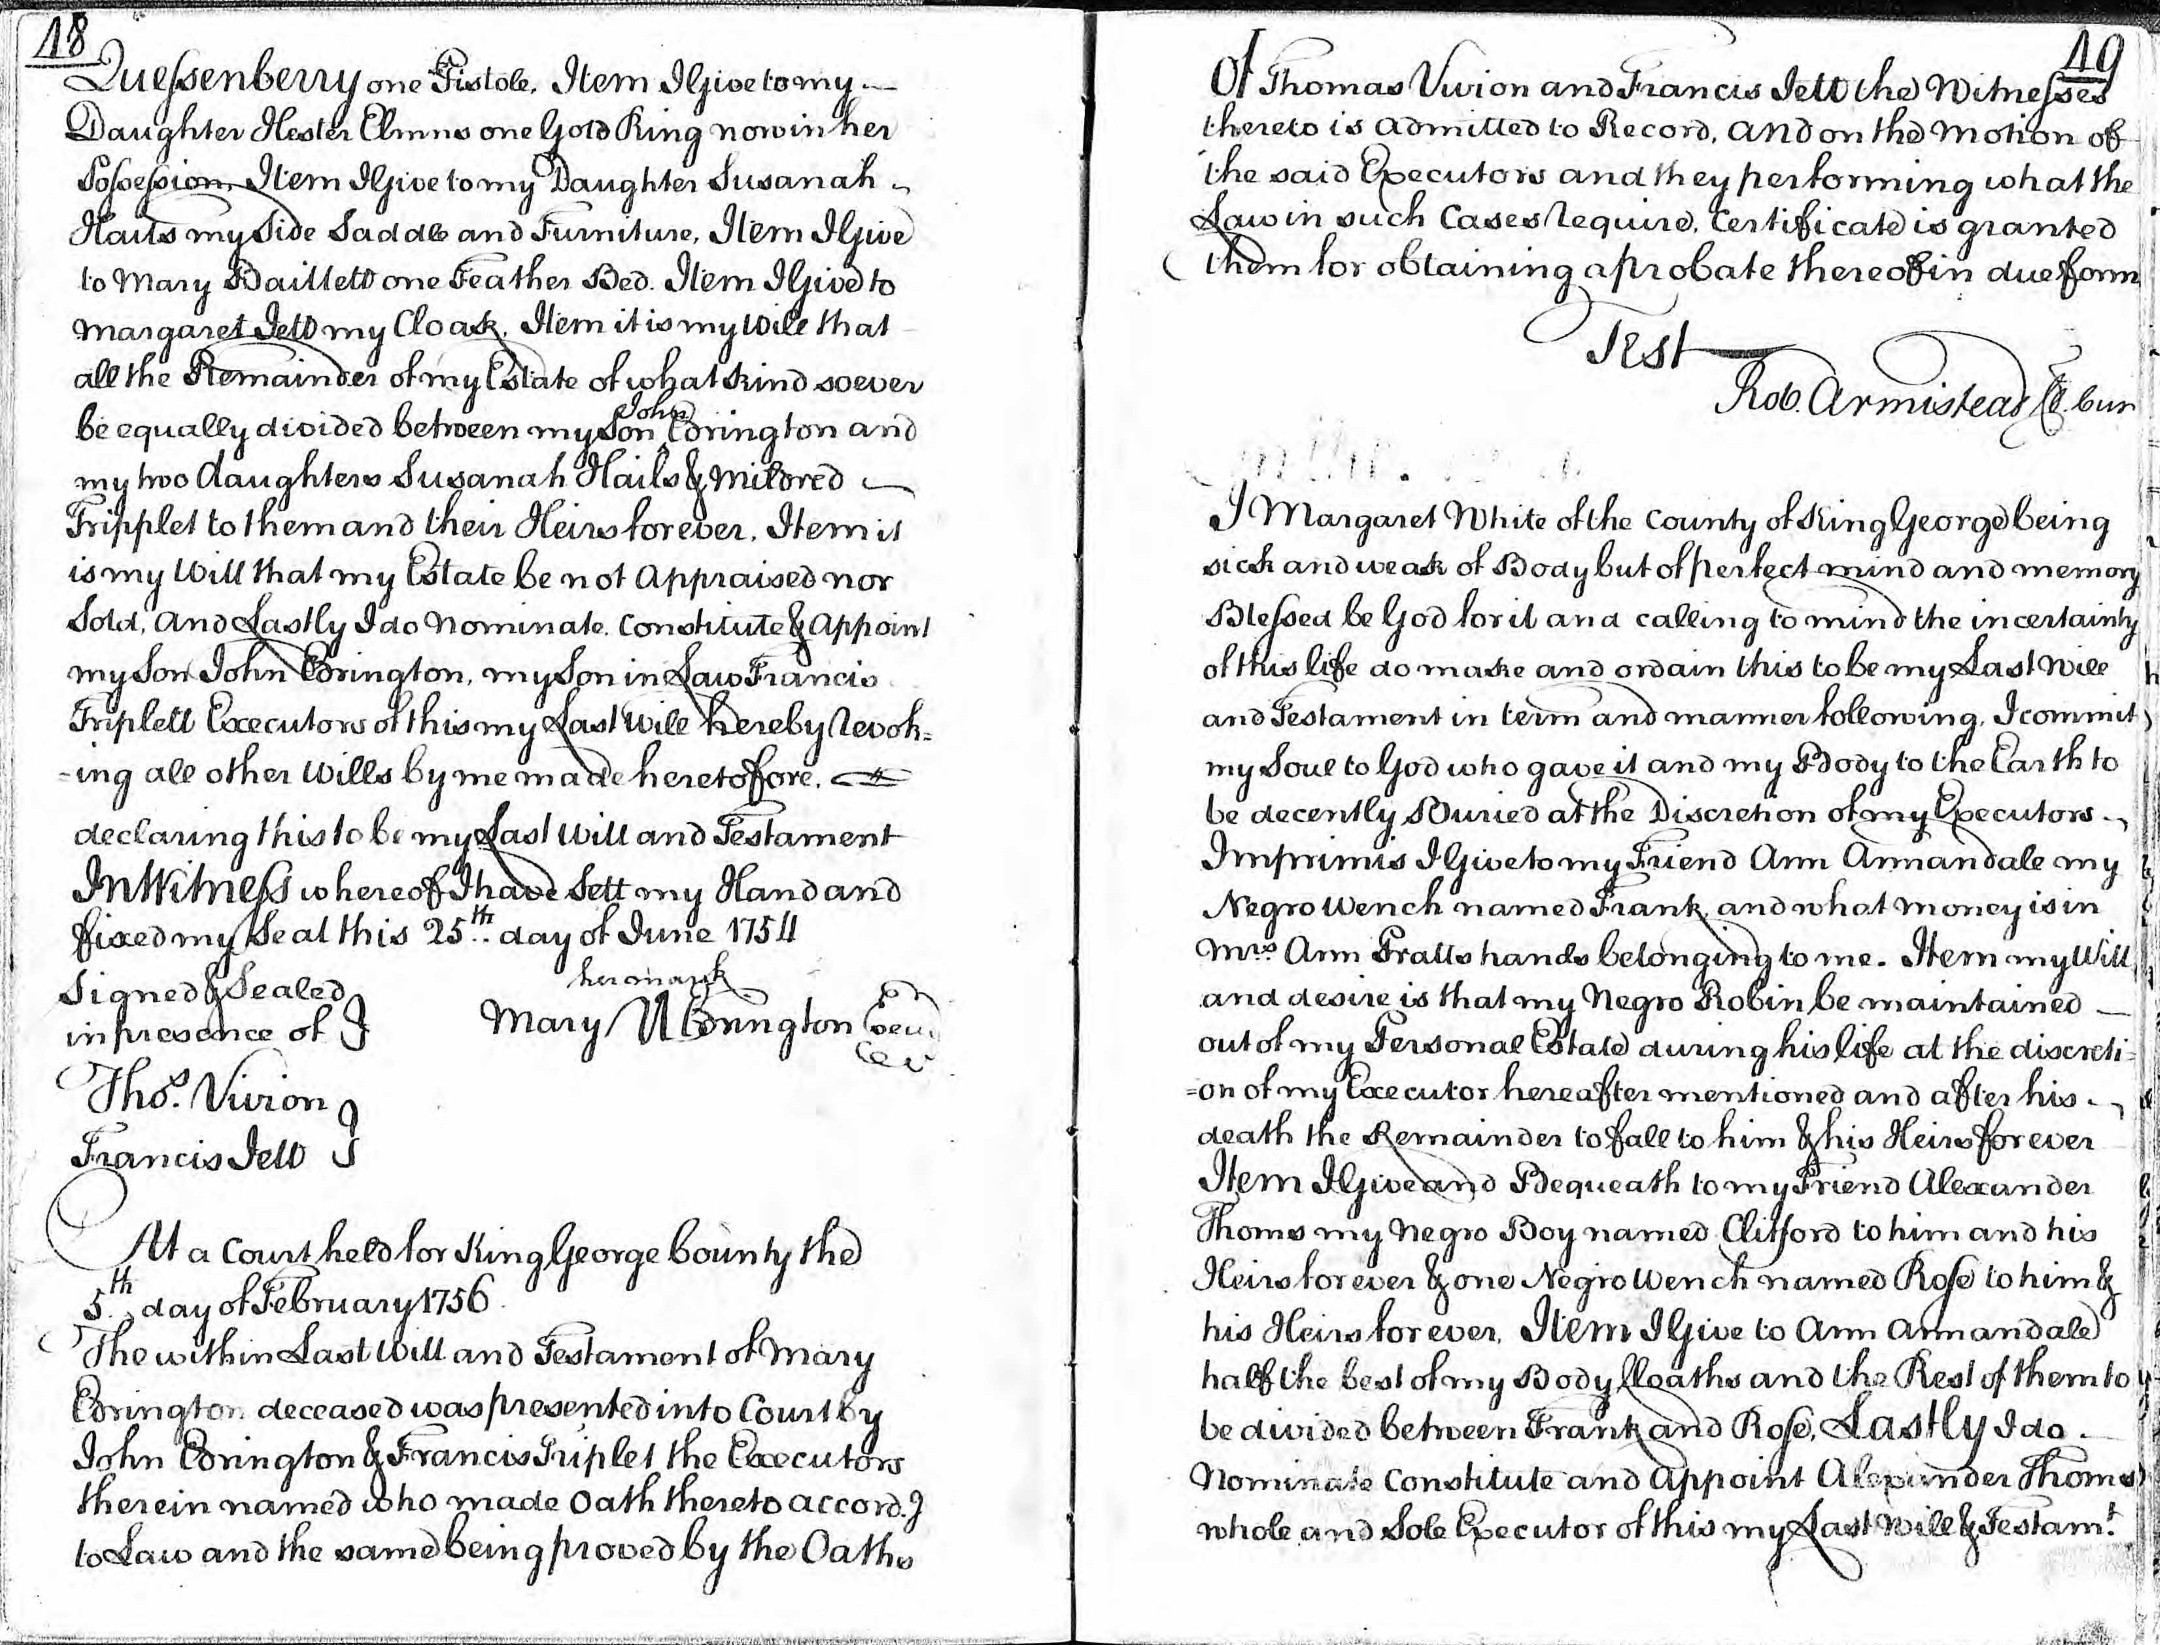 18
Quessenberry one Pistole, Item I Give to my
Daughter Hester Elmns one Gold Ring now in her
Possession, Item I Give to my Daughter Susanah
Hails my Side Saddle and Furniture, Item I Give
to Mary Bartlett one Feather Bed. Item I Give to
Margaret Jett my Cloak, Item it is my Will that
all the Remainder of my Estate of what kind soever
John
be equally divided between my Son Edrington and
my two daughters Susanah Hails & Mildred
Tripplet to them and their Heirs forever, Item it
is my Will that my Estate be not Appraised nor
Sold, And Lastly I do Nominate, Constitute & Appoint
my Son John Edrington, my Son in Law Francis
Triplett Executors of this my Last Will hereby revok=
=ing all other Wills by me made heretofore,
declaring this to be my Last Will and Testament
In Witness whereof I have Sett my Hand and
fixed my Seal this 25th day of June 1754
Signed & Sealed
in presence of
her mark
Mary Edrington
Thos. Vivion
Francis Jett
At a Court held for King George County the
5th day of February 1756
The within Last Will and Testament of Mary
Edrington deceased was presented into Court by
John Edrington & Francis Triplet the Executors
therein named who made Oath thereto accord.g
to Law and the same being proved by the Oaths
19
Of Thomas Vivion and Francis Jett the Witnesses
thereto is Admitted to Record, And on the Motion of
the said Executors and they performing what the
Law in such Cases require, Certificate is granted
them for obtaining a probate thereof in due form
Test
Rob. Armistead Cl. Cur
I Margaret White of the County of King George being
sick and weak of Body but of perfect mind and memory
Blessed be God for it and calling to mind the incertainty
of this life do make and ordain this to be my Last Will
and Testament in term and manner following, I commit
my Soul to God who gave it and my Body to the Earth to
be decently Buried at the Discretion of my Executors
Imprimis I Give to my Friend Ann Annandale my
Negro Wench named Frank, and what money is in
Mrs. Ann Pratts hands belonging to me. Item my Will
and desire is that my Negro Robin be maintained
out of my Personal Estate during his life at the discreti=
=on of my Executor hereafter mentioned and after his
death the Remainder to fall to him & his Heirs forever
Item I Give and Bequeath to my Friend Alexander
Thoms my Negro Boy named Clifford to him and his
Heirs forever & one Negro Wench named Rose to him &
his Heirs forever, Item I Give to Ann Annandale
half the best of my Body Cloaths and the Rest of them to
be divided between Frank and Rose, Lastly I do
Nominate Constitute and Appoint Alexander Thoms
whole and Sole Executor of this my Last Will & Testam.t